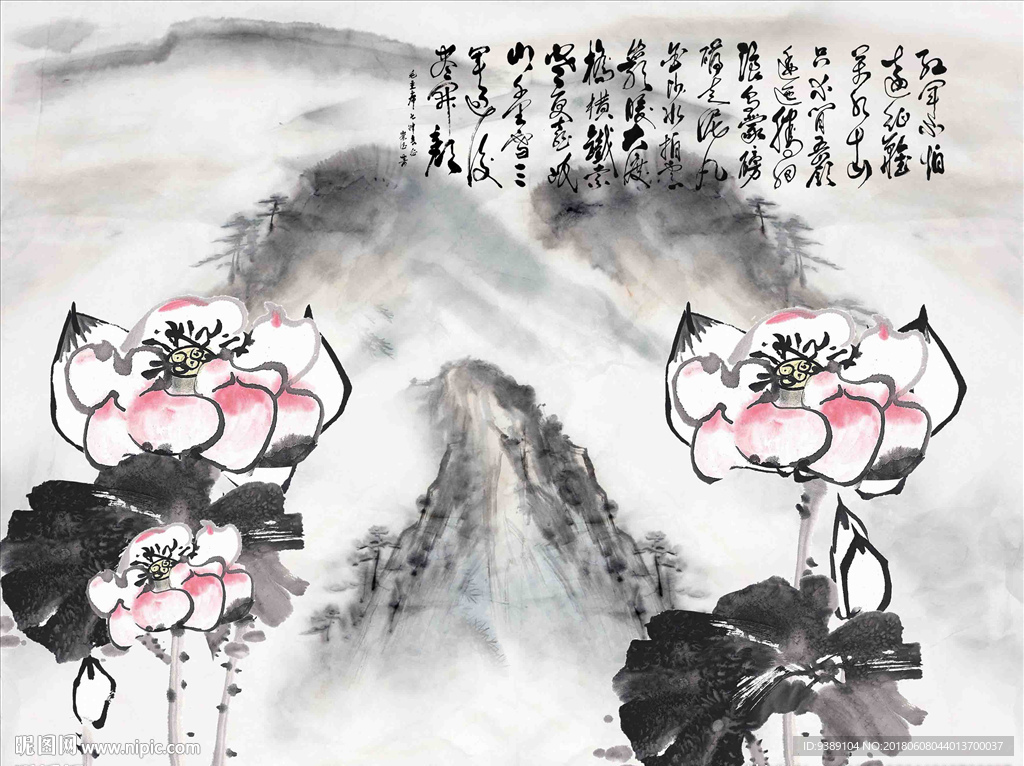 紅軍不怕
遠征難
萬水千山
只等閒五嶺
逶迤騰細
浪烏蒙磅
礴走泥丸
金沙水拍雲
崖暖大渡
橋橫鐵索
寒更喜岷
山千里雪三
軍過後
盡開顏
毛主席七律長征
昵图网 www.nipic.com
ID:9389104 NO:20180608044013700037